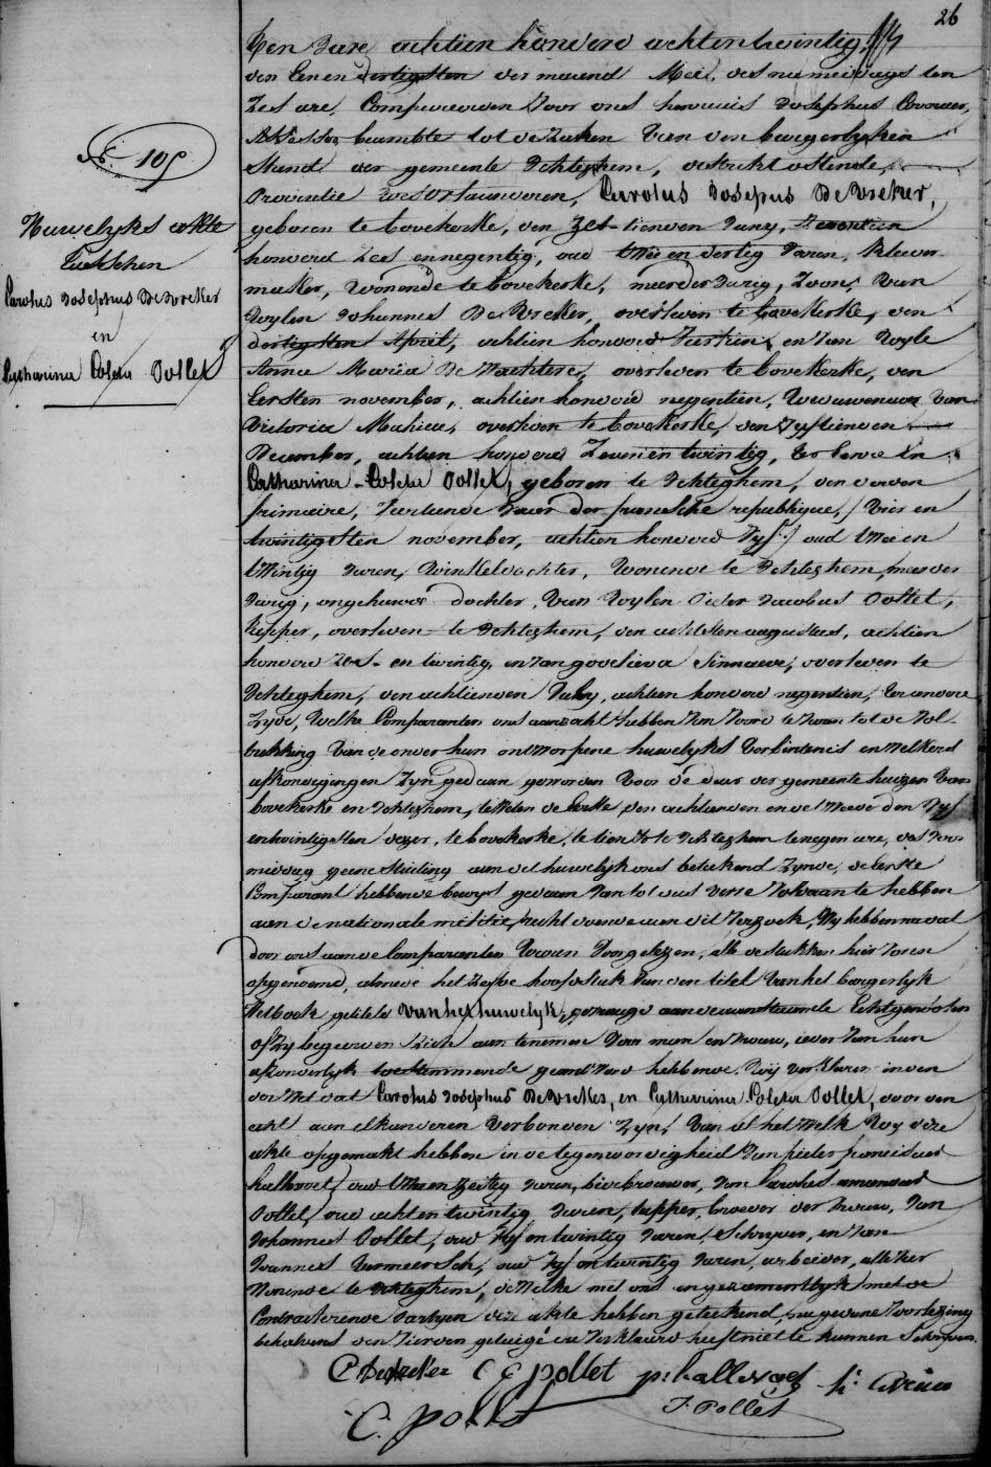 26
N.º 10
Huwelyks akte
tusschen
Carolus Josephus DeVreker
en
Catharina Coleta Pollet
Den Jare achtien honderd achtentwintig
den Eenendertigsten der maend Meï, des namiddags ten
Zes ure, Compareerden voor ons Josephus
beambte tot de Zaken van den burgerlyken
Stand der gemeente Ichteghem, distrikt ostende,
Provintie westvlaenderen, Carolus Josepus DeVreker,
geboren te bovekerke, den Zes-tienden Juny, Zeventien
honderd Zes en negentig, oud twee en dertig Jaren, kleer-
maker, wonende te bovekerke, meerderJarig, Zoon, van
Wylen Johannes DeVreker, overleden te bovekerke, den
dertigsten April, achtien honderd veertien, en van Wyle
Anna Maria De Wachtere, overleden te bovekerke, den
Eersten november, achtien honderd negentien, Weduwenaer van
Victoria Mahieu, overleden te bovekerke, den Vyftienden
December, achtien honderd Zevenentwintig, ter Eenre En
Catharina-Coleta Pollet, geboren te Ichteghem, den derden
frimaire, veertiende Jaer der fransche republique, / vier en
twintigsten november, achtien honderd Vyf / oud twee en
twintig Jaren, Winkeldochter, Wonende te Ichteghem, meerder
Jarig, ongehuwde dochter, van Wylen Pieter Jacobus Pollet,
kupper, overleden te Ichteghem, den achtsten augustus, achtien
honderd Zes- en twintig, en van godelieva Sinnaeve, overleden te
Ichteghem, den achtienden July, achtien honderd negentien, ter andere
Zyde, Welke Comparanten ons aenzocht hebben van voord te gaen tot de Vol-
trekking van de onder hun ontworpene huwelyks Verbintenis en welkers
afkondigingen Zyn gedaen geworden voor de deur der gemeente huizen van
bovekerke en Ichteghem, te weten de Eerste den achtienden en de tweede den Vyf
entwintigsten dezer, te bovekerke, te tien, te Ichteghem te negen ure, des voor
middag geene stuiting aen det huwelyk ons betekend Zynde, de Eerste
Comparant hebbende bewys gedaen van tot dus verre voldaen te hebben
aen de nationale militie, recht doende aen dit verzoek, Wy hebben na dat
door ons aen de Comparanten Waren voorgelezen, alle de stukken hier voren
opgenoemd, alsmede het Zesde hoofdstuk van den titel van het burgerlyk
Wetboek getiteld van het huwelyk, gevraegd aen de aenstaende Echtgenoten
of Zy begeeren Zich aen te nemen voor man en vrouw, ieder van hun
afzonderlyk toestemmende geantwoord hebbende. Wy verklaren in den
dat Carolus Josephus DeVreker, en Catharina Coleta Pollet, door den
echt aen elkanderen verbonden Zyn! Van al het Welk Wy deze
akte opgemaekt hebben in de tegenwoordigheid van pieter franciscus
hallewoet, oud twee en Zestig Jaren, bierbrouwer, van Carolus amandus
Pollet, oud acht en twintig Jaren, kupper, broeder der vrouw, van
Johannes Pollet, oud Vyf en twintig Jaren, Schryver, en van
Joannes Vermeersch, oud Vyf en twintig Jaren, arbeider, alle vier
Wonende te Ichteghem, de Welke met ons en gezamentlyk met de
Contracterende Partyen deze akte hebben geteekend, na gedane voorlezing
behalvens den Vierden getuige die verklaerd heeft niet te kunnen Schryven.
C G pollet
C. Pollet
J. Pollet